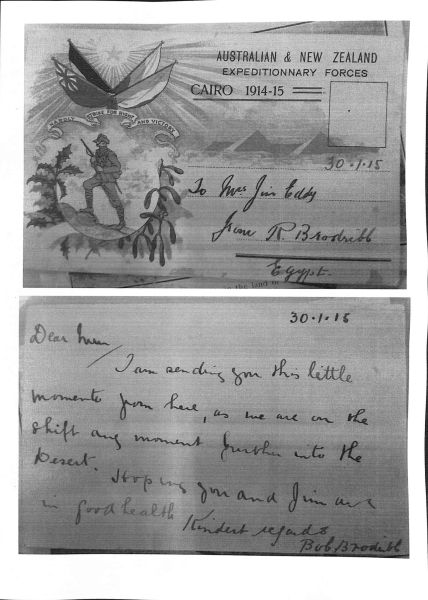 AUSTRALIAN & NEW ZEALAND
EXPEDITIONNARY FORCES
CAIRO 1914-15
STRIKE FOR RIGHT
AND VICTORY
30.1.15
To Mrs Jim Eddy
from R. Brodribb
Egypt.
in the land of
30.1.15
Dear Mum
I am sending you this little
momento from here, as we are on the
shift any moment further into the
Desert. Hoping you and Jim are
in good health
Kindest regards
Bob Brodribb